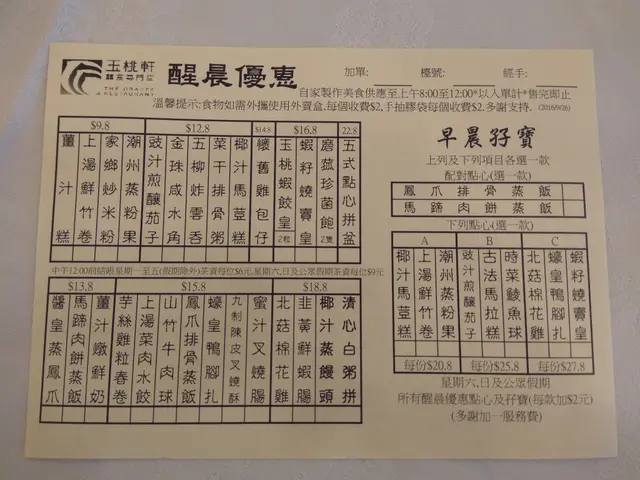 玉桃軒
醒晨優惠
加單:
檯號:
經手:
自家製作美食供應至上午8:00至12:00*以入單計*售完即止
溫馨提示:食物如需外攜使用外賣盒,每個收費$2,手抽膠袋每個收費$2.多謝支持. (2016/9/26)
$9.8
$12.8
$14.8
$16.8
22.8
薑汁糕
上湯鮮竹卷
家鄉炒米粉
潮州蒸粉果
豉汁煎釀茄子
金珠咸水角
五柳炸雲吞
菜干排骨粥
椰汁馬荳糕
懷舊雞包仔
玉桃蝦餃皇2粒
蝦籽燒賣皇
磨菰珍菌飽2隻
五式點心拼盆
中午12:00前結賬星期一至五(假期除外)茶資每位$6元,星期六,日及公眾假期茶資每位$9元
$13.8
$15.8
$18.8
醬皇蒸鳳爪
馬蹄肉餅蒸飯
薑汁燉鮮奶
芋絲雞粒春卷
上湯菜肉水餃
山竹牛肉球
鳳爪排骨蒸飯
蠔皇鴨腳扎
九制陳皮叉燒酥
蜜汁叉燒腸
北菇棉花雞
韭黃鮮蝦腸
椰汁蒸饅頭
清心白粥拼
早晨孖寶
上列及下列項目各選一款
配對點心(選一款)
鳳爪排骨蒸飯
馬蹄肉餅蒸飯
下列點心(選一款)
A
B
C
椰汁馬荳糕
上湯鮮竹卷
潮州蒸粉果
豉汁煎釀茄子
古法馬拉糕
時菜鯪魚球
北菇棉花雞
蠔皇鴨腳扎
蝦籽燒賣皇
每份$20.8
每份$25.8
每份$27.8
星期六,日及公眾假期
所有醒晨優惠點心及孖寶(每款加$2元)
(多謝加一服務費)